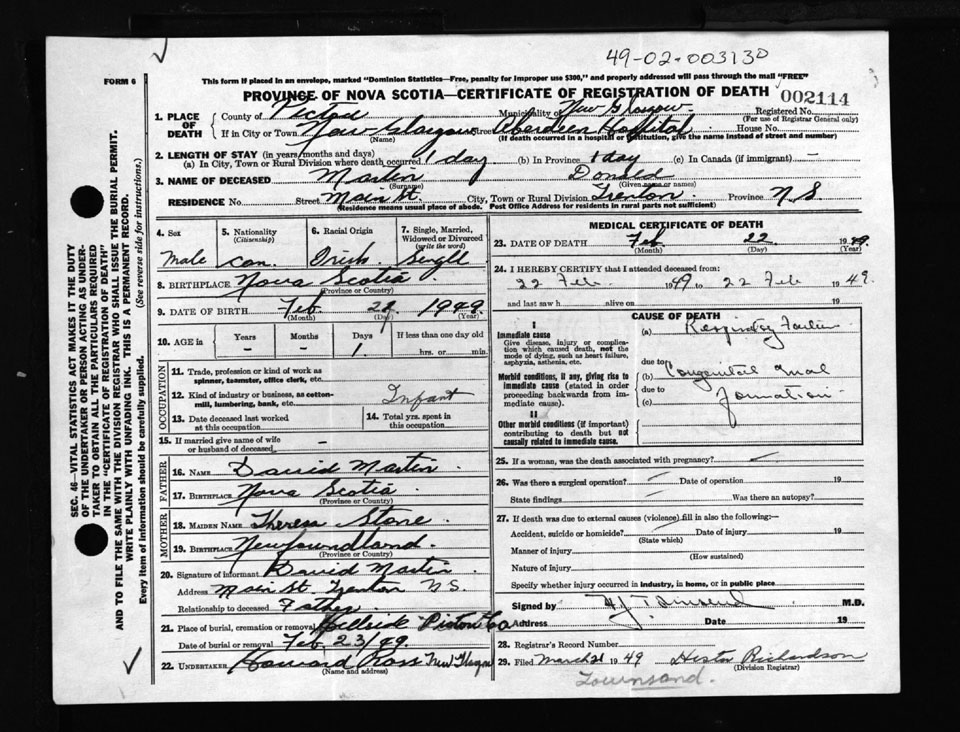 49-02-003130
FORM 6
This form if placed in an envelope, marked "Dominion Statistics—Free, penalty for improper use $300," and properly addressed will pass through the mail "FREE"
PROVINCE OF NOVA SCOTIA—CERTIFICATE OF REGISTRATION OF DEATH
002114
1. PLACE OF DEATH
County of Pictou Municipality of New Glasgow Registered No.
(For use of Registrar General only)
If in City or Town New Glasgow Street Aberdeen Hospital House No.
(Name) (If death occurred in a hospital or institution, give the name instead of street and number)
2. LENGTH OF STAY (in years, months and days)
(a) In City, Town or Rural Division where death occurred 1 day (b) In Province 1 day (c) In Canada (if immigrant) —
3. NAME OF DECEASED Martin Donald
(Surname) (Given name or names)
RESIDENCE No. Street Main St. City, Town or Rural Division Trenton Province N S
(Residence means usual place of abode. Post Office Address for residents in rural parts not sufficient)
4. Sex Male
5. Nationality (Citizenship) Can.
6. Racial Origin Irish
7. Single, Married, Widowed or Divorced (write the word) Single
8. BIRTHPLACE Nova Scotia
(Province or Country)
9. DATE OF BIRTH Feb. 22 1949
(Month) (Day) (Year)
10. AGE in Years — Months — Days 1. If less than one day old hrs. or min.
OCCUPATION
11. Trade, profession or kind of work as spinner, teamster, office clerk, etc.
12. Kind of industry or business, as cotton-mill, lumbering, bank, etc. Infant
13. Date deceased last worked at this occupation
14. Total yrs. spent in this occupation
15. If married give name of wife or husband of deceased —
FATHER
16. NAME David Martin
17. BIRTHPLACE Nova Scotia
(Province or Country)
MOTHER
18. MAIDEN NAME Theresa Stone
19. BIRTHPLACE Newfoundland.
(Province or Country)
20. Signature of informant David Martin
Address Main St. Trenton N.S.
Relationship to deceased Father
21. Place of burial, cremation or removal Hillside Pictou Co
Date of burial or removal Feb. 23/49
22. UNDERTAKER Howard Ross New Glasgow
(Name and address)
MEDICAL CERTIFICATE OF DEATH
23. DATE OF DEATH Feb 22 1949.
(Month) (Day) (Year)
24. I HEREBY CERTIFY that I attended deceased from:
22 Feb. 1949 to 22 Feb 1949.
and last saw h alive on 19
CAUSE OF DEATH
I
Immediate cause
Give disease, injury or complication which caused death, not the mode of dying, such as heart failure, asphyxia, asthenia, etc.
(a) Respiratory Failure
due to
Morbid conditions, if any, giving rise to immediate cause (stated in order proceeding backwards from immediate cause).
(b) Congenital mal
due to
(c) formation
II
Other morbid conditions (if important) contributing to death but not causally related to immediate cause.
25. If a woman, was the death associated with pregnancy?
26. Was there a surgical operation? Date of operation 19
State findings Was there an autopsy?
27. If death was due to external causes (violence) fill in also the following:—
Accident, suicide or homicide? Date of injury 19
(State which)
Manner of injury
(How sustained)
Nature of injury
Specify whether injury occurred in industry, in home, or in public place
Signed by H J Townsend M.D.
Address Date 19
28. Registrar's Record Number
29. Filed March 21 1949 Hester Richardson
(Division Registrar)
Townsand.
SEC. 46—VITAL STATISTICS ACT MAKES IT THE DUTY
OF THE UNDERTAKER OR PERSON ACTING AS UNDER-
TAKER TO OBTAIN ALL THE PARTICULARS REQUIRED
IN THE "CERTIFICATE OF REGISTRATION OF DEATH"
AND TO FILE THE SAME WITH THE DIVISION REGISTRAR WHO SHALL ISSUE THE BURIAL PERMIT.
WRITE PLAINLY WITH UNFADING INK. THIS IS A PERMANENT RECORD.
Every item of information should be carefully supplied. (See reverse side for instructions.)